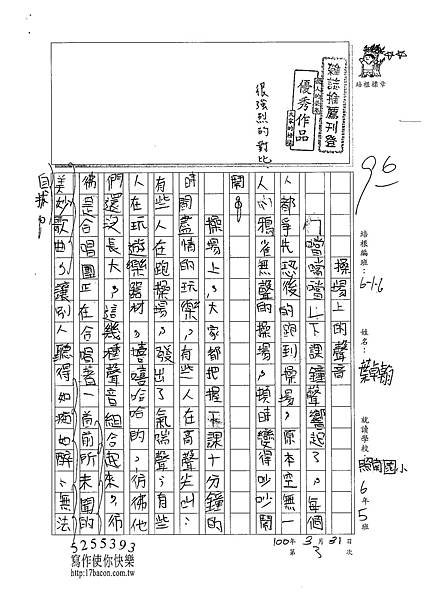 雜誌推薦刊登
優秀作品
培根標章
很強烈的對比
96
培根編班：6-1.6
姓名：葉卓翰
就讀學校：照南國小 6年5班
操場上的聲音
「噹噹噹」下課鐘聲響起了，每個
人都爭先恐後的跑到操場，原本空無一
人、鴉雀無聲的操場，頓時變得吵吵鬧
鬧。
操場上，大家都把握下課十分鐘的
時間盡情的玩樂，有些人在高聲尖叫；
有些人在跑操場，發出了氣喘聲；有些
人在玩遊樂器材，嘻嘻哈哈的，彷彿他
們還沒長大。這幾種聲音組合起來，彷
彿是合唱團正在合唱著一首前所未聞的
美妙歌曲，讓別人聽得如痴如醉、無法
自拔。
100年3月31日
第3次
5255393
寫作使你快樂
http://17bacon.com.tw/